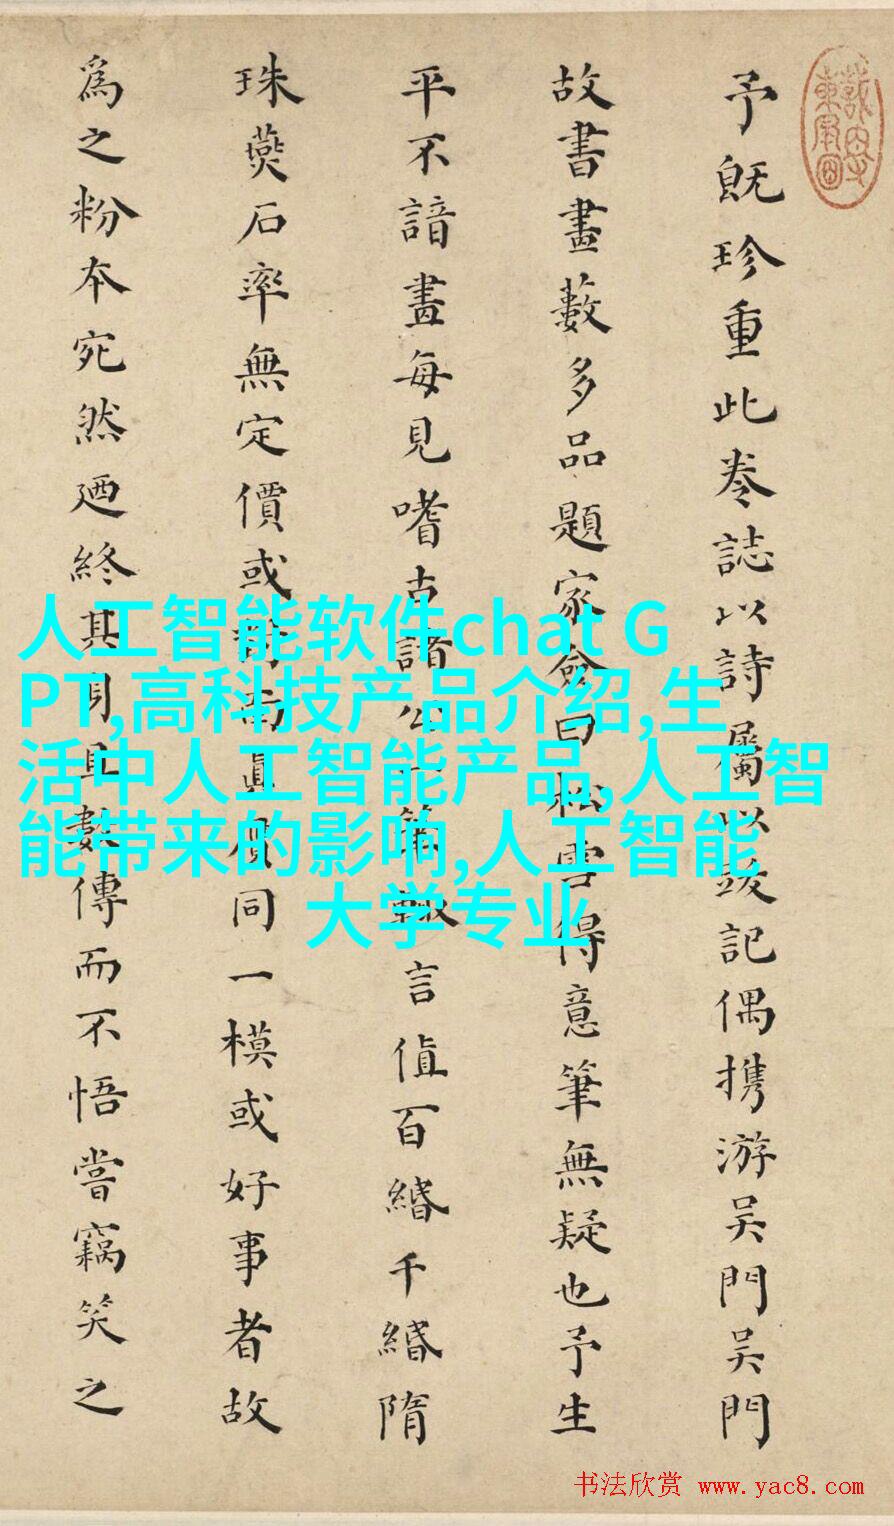 予既珍重此卷誌以詩屬以跋記偶携游吳門吳門
故書畫藪多品題家僉曰松雪得意筆無疑也予生
平不諳畫每見嗜古諸公一筆輒言值百緡千緡隋
珠燕石率無定價或對面真贗同一模或好事者故
為之粉本宛然迺終其身且數傳而不悟嘗竊笑之
人工智能软件chat G
PT,高科技产品介绍,生
活中人工智能产品,人工智
能带来的影响,人工智能
大学专业
书法欣赏 www.yac8.com